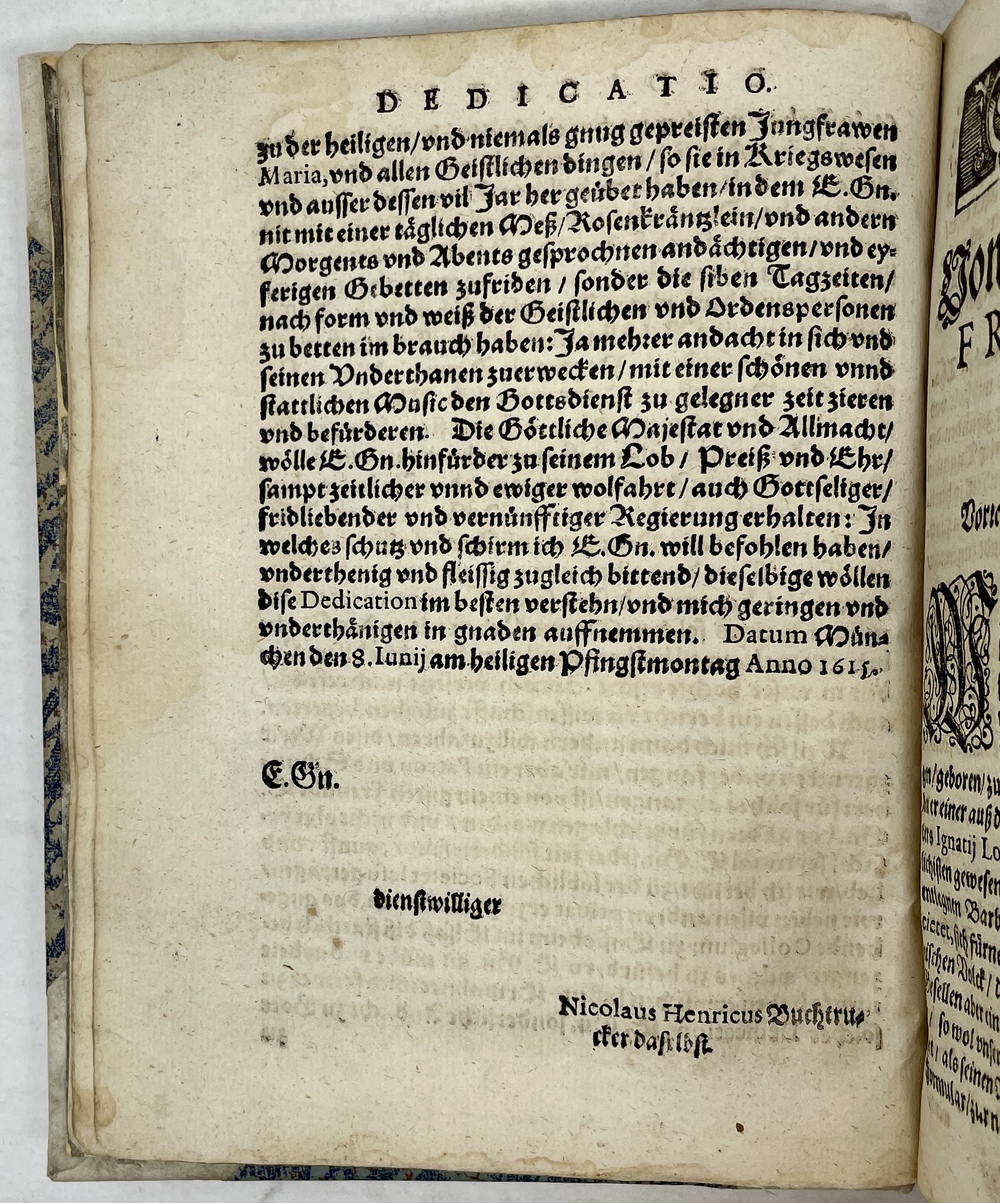 DEDICATIO.
zu der heiligen/vnd niemals gnug gepreisten Jungfrawen
Maria,vnd allen Geistlichen dingen / so sie in Kriegswesen
vnd ausser dessen vil Jar her geübet haben/in dem E.Gn.
nit mit einer täglichen Meß/Rosenkräntzlein/vnd andern
Morgents vnd Abents gesprochnen andächtigen/vnd ey-
ferigen Gebetten zufriden / sonder die siben Tagzeiten/
nach form vnd weiß der Geistlichen vnd Ordenspersonen
zu betten im brauch haben: Ja mehrer andacht in sich vnd
seinen Vnderthanen zuerwecken / mit einer schönen vnnd
stattlichen Music den Gottsdienst zu gelegner zeit zieren
vnd befürderen. Die Göttliche Majestat vnd Allmacht/
wölle E.Gn.hinfürder zu seinem Lob / Preiß vnd Ehr/
sampt zeitlicher vnnd ewiger wolfahrt / auch Gottseliger/
fridliebender vnd vernünfftiger Regierung erhalten: In
welches schutz vnd schirm ich E.Gn. will befohlen haben/
vnderthenig vnd fleissig zugleich bittend/ dieselbige wöllen
dise Dedication im besten verstehn/vnd mich geringen vnd
vnderthänigen in gnaden auffnemmen. Datum Mün-
chen den 8.Iunij am heiligen Pfingstmontag Anno 1615.
E.Gn.
dienstwilliger
Nicolaus Henricus Buchtru-
cker daselbst.
F R
gen/geboren/zu
Ignatij Lo
gewesen